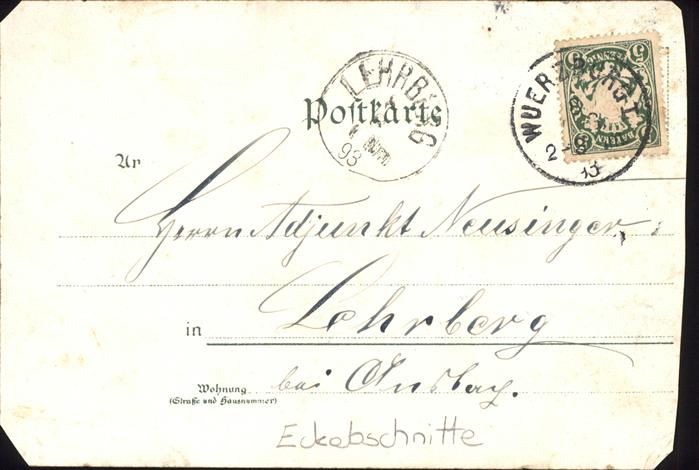 LEHRBERG
93
WUERZBURG I
5 PFENNIG 5
BAYERN
Postkarte
An
Herrn Adjunkt Neusinger
in Lehrberg
Wohnung bei Ansbach.
(Straße und Hausnummer)
Eckabschnitte